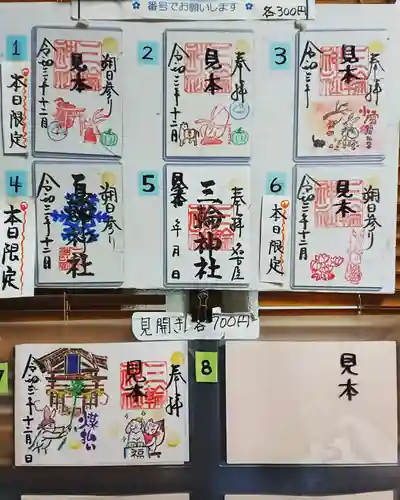 番号でお願いします
各300円
1
本日限定
朔日参り
見本
令和三年十二月
2
奉拝
見本
令和三年十二月
3
奉拝
見本
令和三年十二月
4
本日限定
朔日参り
三輪神社
令和三年十二月
5
奉拝 名古屋
三輪神社
見本
年 月 日
6
本日限定
朔日参り
見本
令和三年十二月
見開き 各700円
7
奉拝
三輪神社
見本
煤払い
福
令和三年十二月 日
8
見本